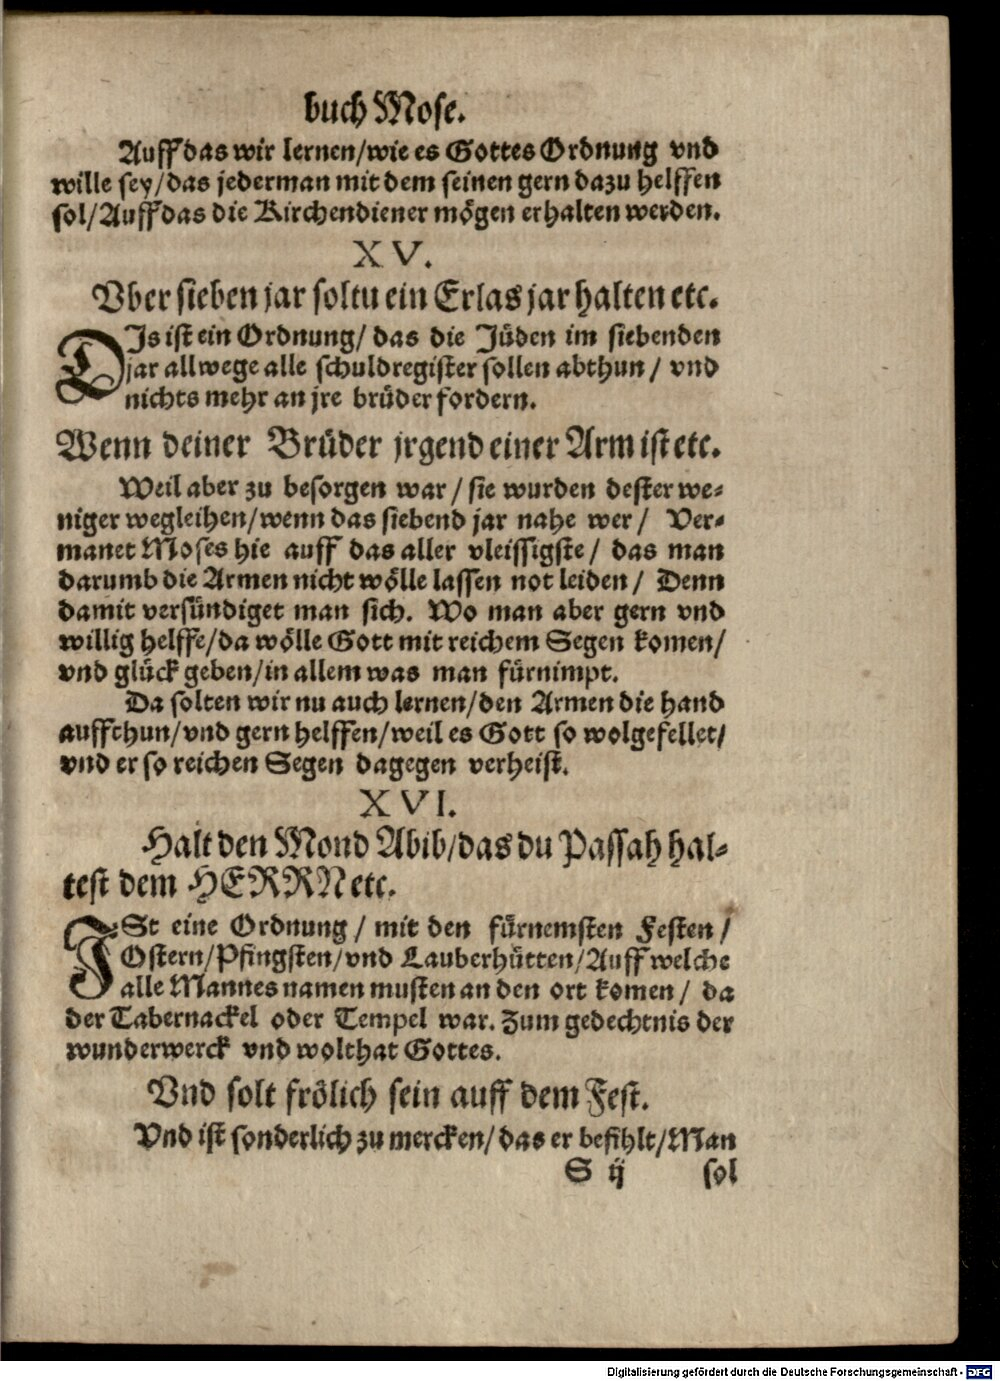 buch Mose.
Auff das wir lernen/wie es Gottes Ordnung vnd
wille sey/das jederman mit dem seinen gern dazu helffen
sol/Auff das die Kirchendiener mögen erhalten werden.
XV.
Vber sieben jar soltu ein Erlas jar halten etc.
DIs ist ein Ordnung/ das die Jüden im siebenden
jar allwege alle schuldregister sollen abthun / vnd
nichts mehr an jre brüder fordern.
Wenn deiner Brüder jrgend einer Arm ist etc.
Weil aber zu besorgen war / sie wurden dester we-
niger wegleihen/wenn das siebend jar nahe wer / Ver-
manet Moses hie auff das aller vleissigste / das man
darumb die Armen nicht wölle lassen not leiden / Denn
damit versündiget man sich. Wo man aber gern vnd
willig helffe/da wölle Gott mit reichem Segen komen/
vnd glück geben/in allem was man fürnimpt.
Da solten wir nu auch lernen/den Armen die hand
auffthun/vnd gern helffen/weil es Gott so wolgefellet/
vnd er so reichen Segen dagegen verheist.
XVI.
Halt den Mond Abib/das du Passah hal-
test dem HERRN etc.
ISt eine Ordnung / mit den fürnemsten Festen /
Ostern/Pfingsten/vnd Lauberhütten/Auff welche
alle Mannes namen musten an den ort komen / da
der Tabernackel oder Tempel war. Zum gedechtnis der
wunderwerck vnd wolthat Gottes.
Vnd solt frölich sein auff dem Fest.
Vnd ist sonderlich zu mercken/das er befihlt/Man
S ij sol
Digitalisierung gefördert durch die Deutsche Forschungsgemeinschaft - DFG